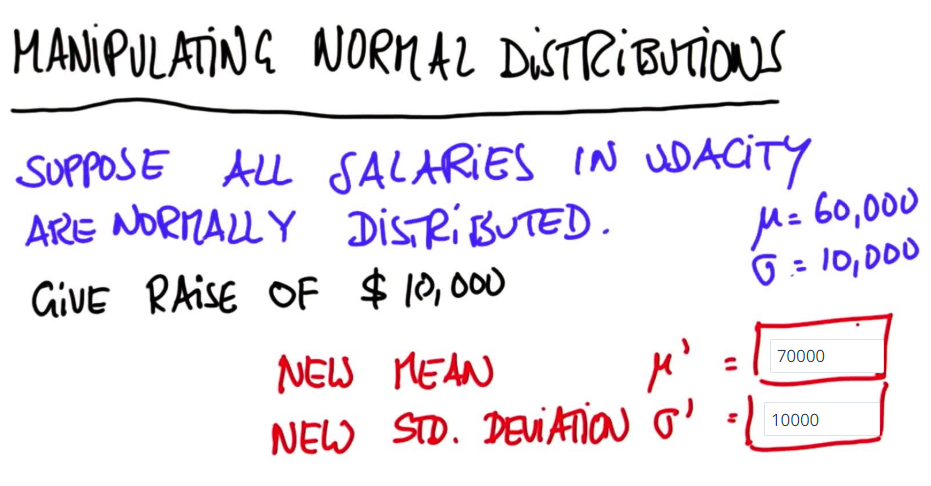 MANIPULATING NORMAL DISTRIBUTIONS
SUPPOSE ALL SALARIES IN UDACITY
ARE NORMALLY DISTRIBUTED.
μ = 60,000
σ = 10,000
GIVE RAISE OF $ 10,000
NEW MEAN μ' = 70000
NEW STD. DEVIATION σ' = 10000